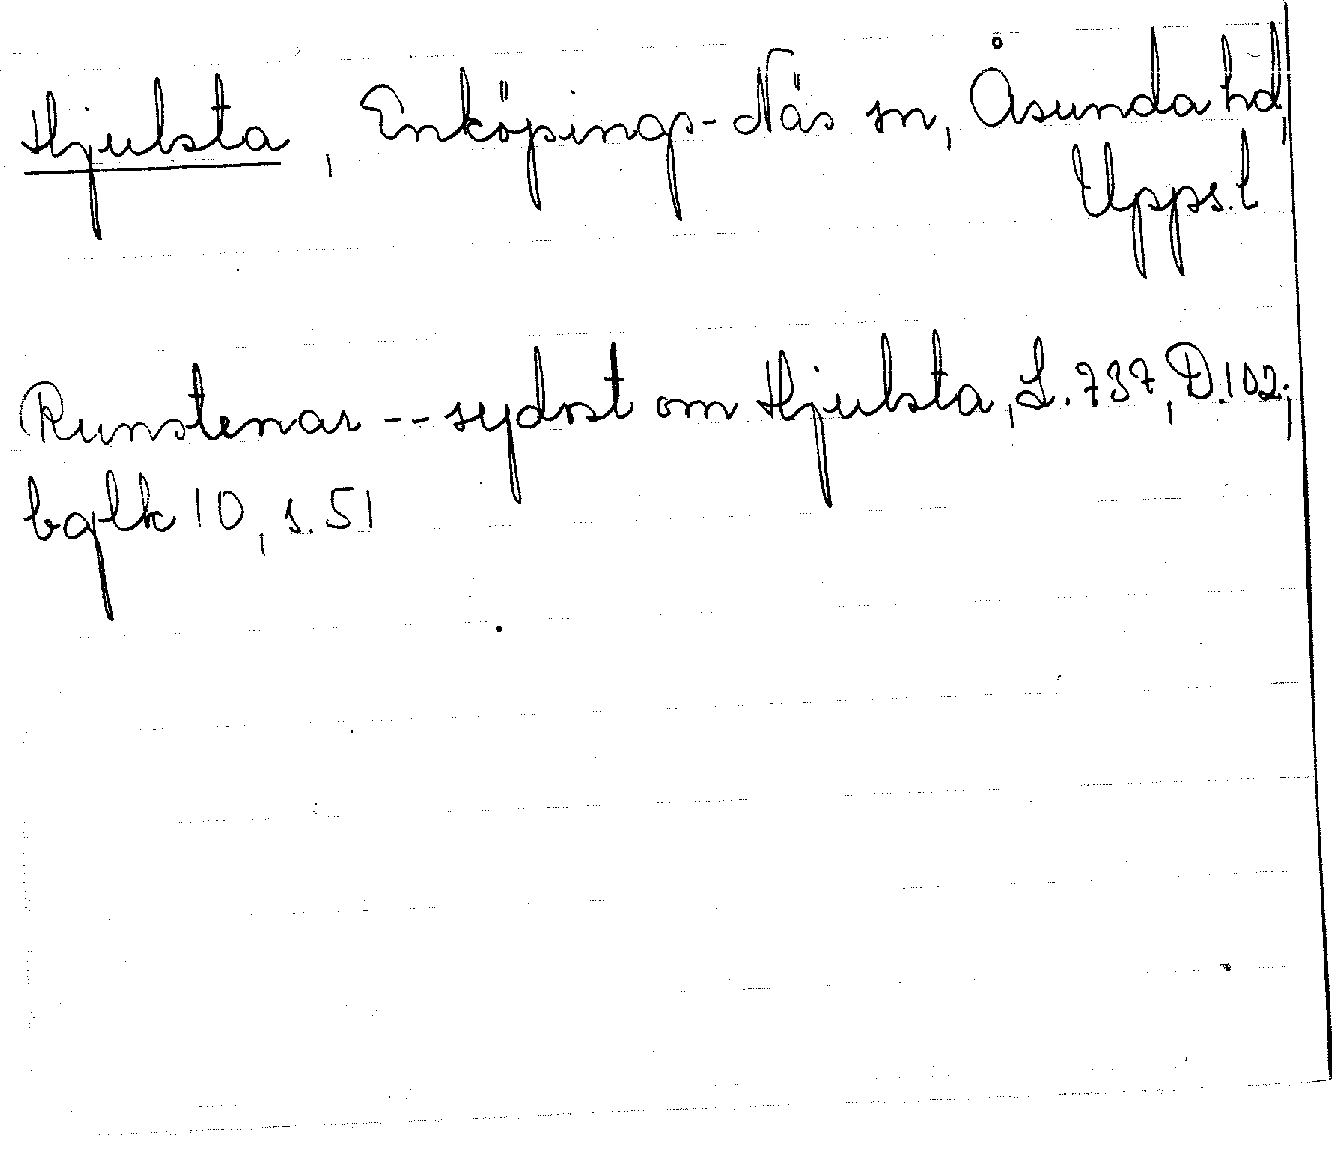 Hjulsta, Enköpings-Näs sn, Åsunda hd,
Upps.l
Runstenar -- sydost om Hjulsta, L. 737, D. 102;
bqlk 10, s. 51